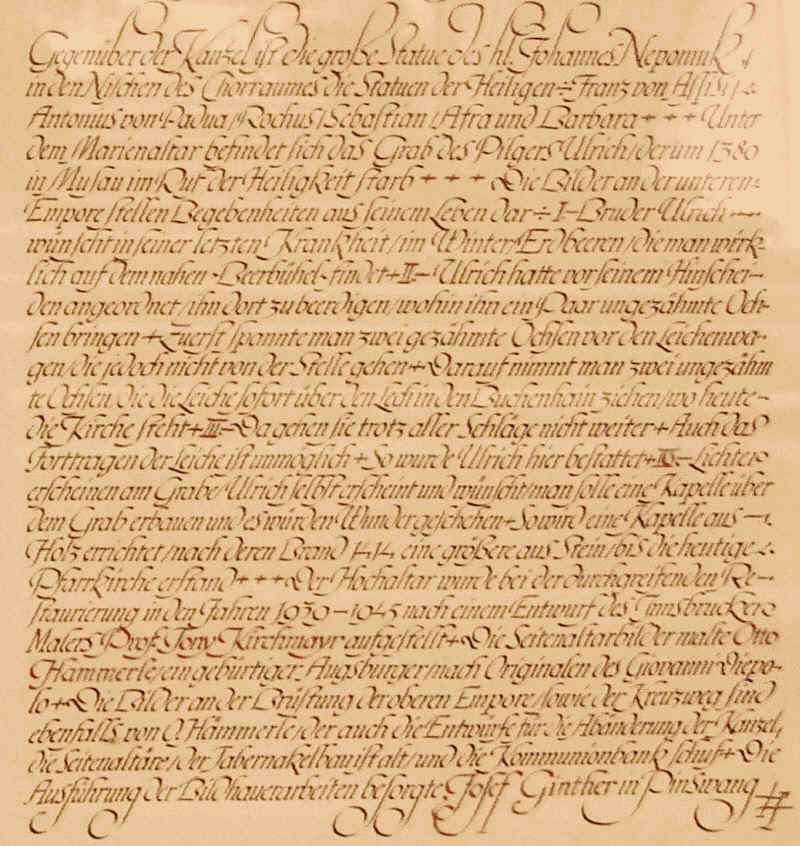 Gegenüber der Kanzel ist die große Statue des hl. Johannes Nepomuk +
in den Nischen des Chorraumes die Statuen der Heiligen ÷ Franz von Assisi,
Antonius von Padua, Rochus, Sebastian, Afra und Barbara + + + Unter
dem Marienaltar befindet sich das Grab des Pilgers Ulrich, der um 1380
in Musau im Ruf der Heiligkeit starb + + + + Die Bilder an der unteren
Empore stellen Begebenheiten aus seinem Leben dar ÷ I – Bruder Ulrich –
wünscht in seiner letzten Krankheit, im Winter, Erdbeeren, die man wirk-
lich auf dem nahen „Beerbühel“ findet + II – Ulrich hatte vor seinem Hinschei-
den angeordnet, ihn dort zu beerdigen, wohin ihn ein Paar ungezähmte Och-
sen bringen + Zuerst spannte man zwei gezähmte Ochsen vor den Leichenwa-
gen, die jedoch nicht von der Stelle gehen + Darauf nimmt man zwei ungezähm
te Ochsen, die die Leiche sofort über den Lech in den Buchenhain ziehen, wo heute –
die Kirche steht + III – Da gehen sie trotz aller Schläge nicht weiter + Auch das
Forttragen der Leiche ist unmöglich + So wurde Ulrich hier bestattet + IV – Lichter
erscheinen am Grabe, Ulrich selbst erscheint und wünscht, man solle eine Kapelle über
dem Grab erbauen und es würden Wunder geschehen + So wird eine Kapelle aus –
Holz errichtet, nach deren Brand 1414 eine größere aus Stein, bis die heutige
Pfarrkirche erstand + + + Der Hochaltar wurde bei der durchgreifenden Re-
staurierung in den Jahren 1939 – 1945 nach einem Entwurf des Innsbruckers
Malers Prof. Tony Kirchmayr aufgestellt + Die Seitenaltarbilder malte Otto
Hämmerle, ein gebürtiger Augsburger, nach Originalen des Giovanni Tiepo-
lo + Die Bilder an der Brüstung der oberen Empore, sowie der Kreuzweg sind
ebenfalls von O. Hämmerle, der auch die Entwürfe für die Abänderung der Kanzel,
die Seitenaltäre, der Tabernakelbau ist alt, und die Kommunionbank schuf + Die
Ausführung der Bildhauerarbeiten besorgte Josef Ginther in Pinswang #